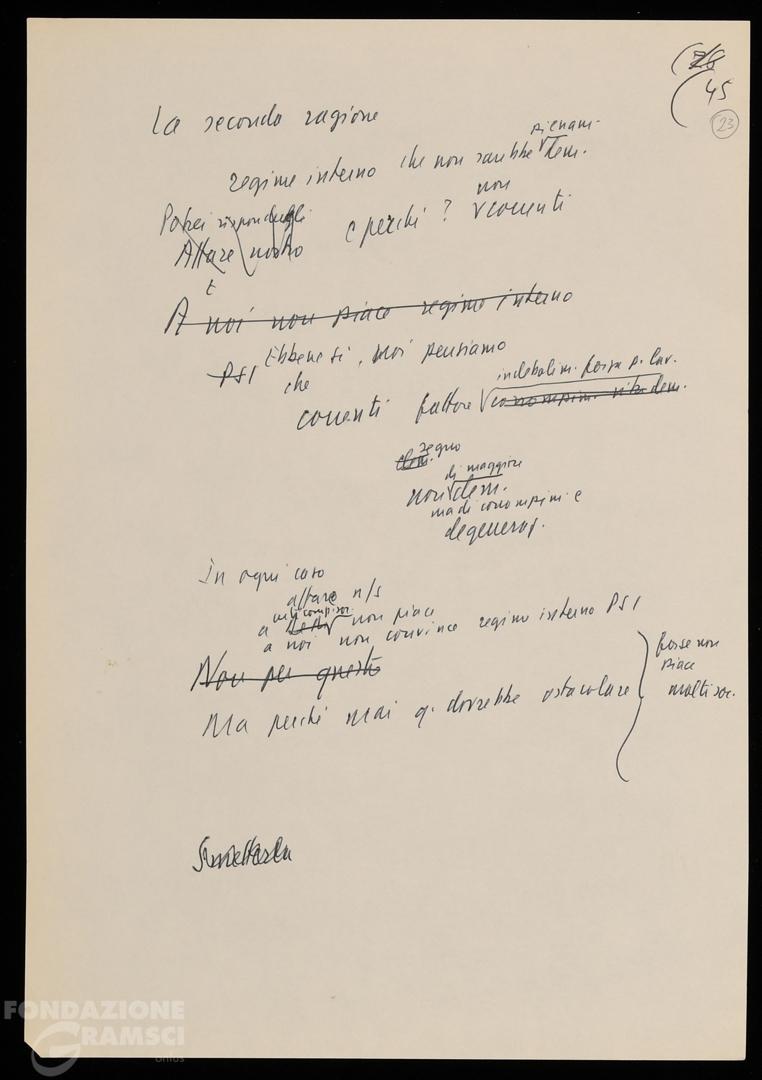 45
23
La seconda ragione
pienam.
regime interno che non sarebbe dem.
non
Potrei rispondergli
Affare nostro e perché? correnti
A noi non piace regime interno
PSI Ebbene sì, noi pensiamo
che
indebolim. forza p. lav.
correnti fattore corrompim. vita dem.
segno
dem.
di maggiore
non dem.
ma di corrompim. e
degeneraz.
In ogni caso
affare n/s
a non piace
a noi non convince regime interno PSI
Non per questo
forse non
piace
molti soc.
Ma perché mai q. dovrebbe ostacolare
FONDAZIONE
GRAMSCI
onlus